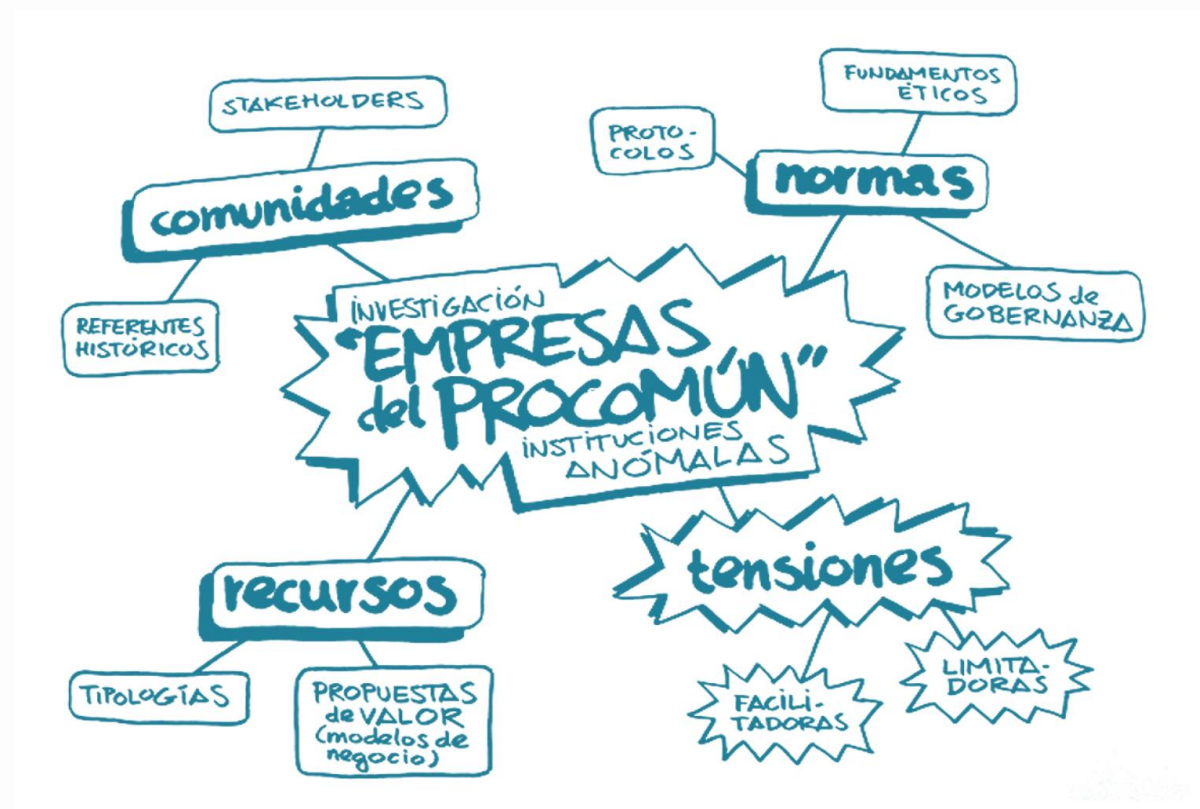 STAKEHOLDERS
comunidades
REFERENTES
HISTÓRICOS
FUNDAMENTOS
ÉTICOS
PROTO-
COLOS
normas
MODELOS de
GOBERNANZA
INVESTIGACIÓN
"EMPRESAS
del PROCOMÚN"
INSTITUCIONES
ANÓMALAS
recursos
TIPOLOGÍAS
PROPUESTAS
de VALOR
(modelos de
negocio)
tensiones
FACILI-
TADORAS
LIMITA-
DORAS